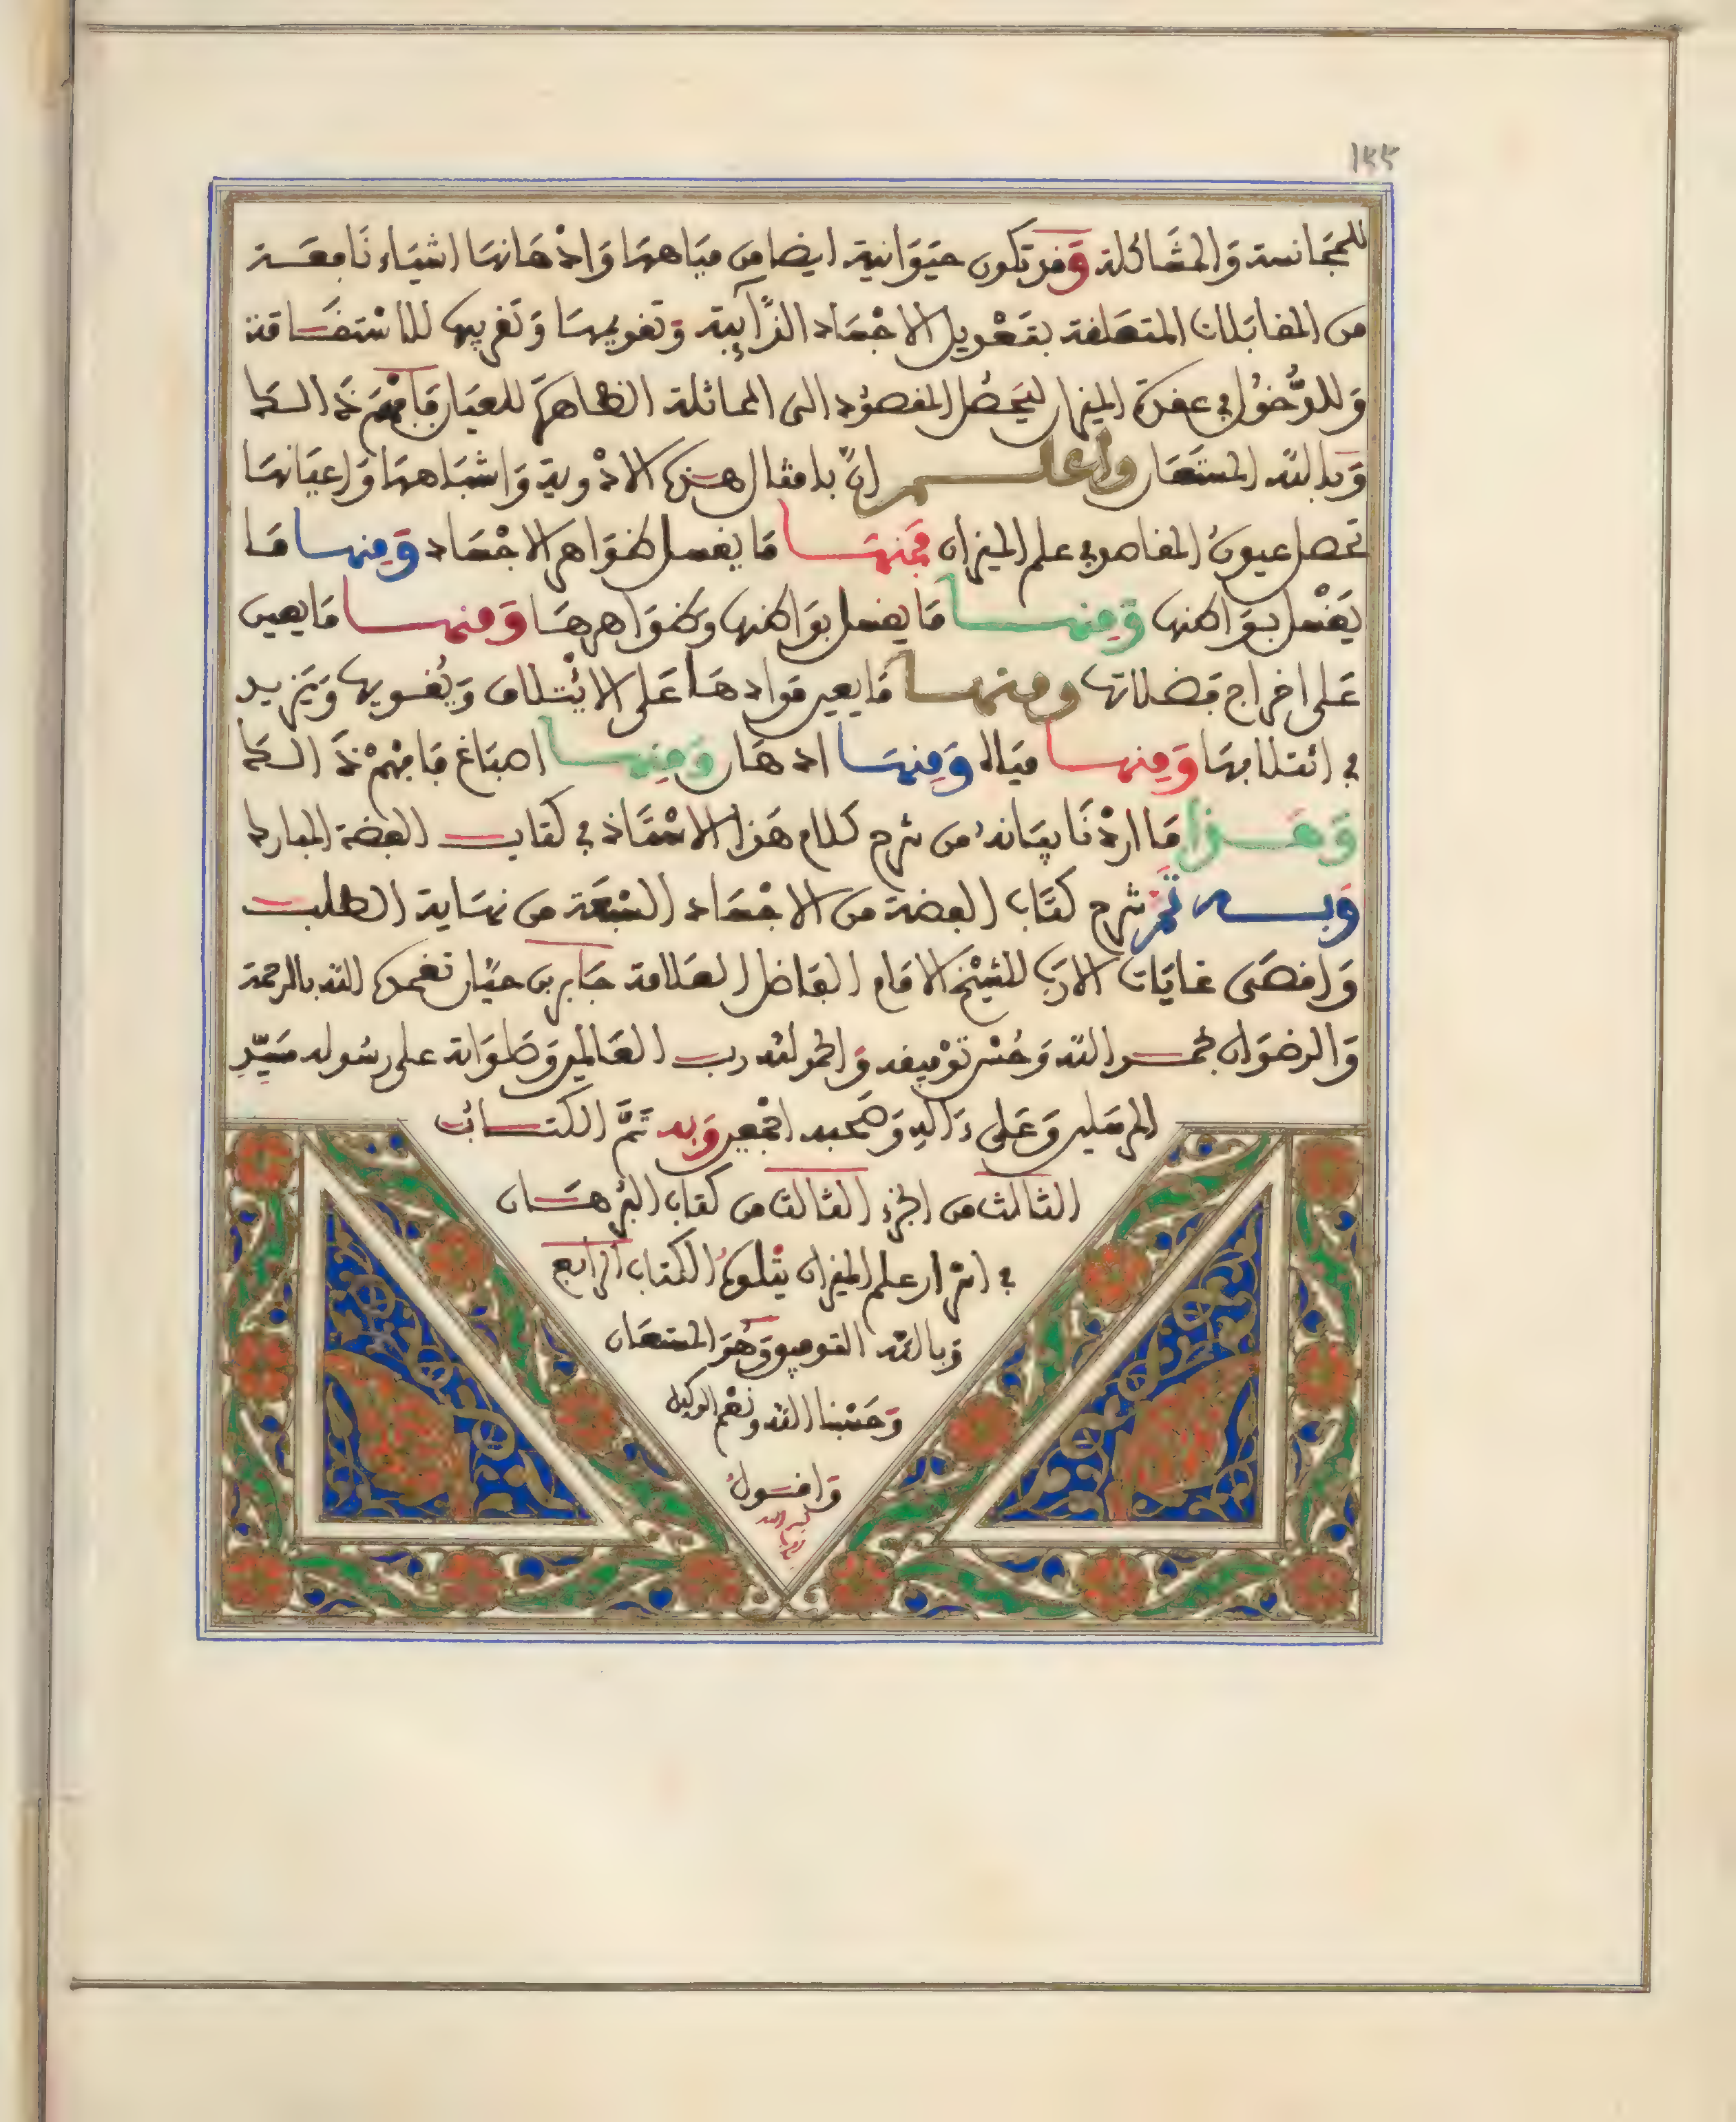 ١٥٥
للمجانسة والمشاكلة وقد تكون حيوانية ايضا من مياهها واذهانها اشياء نافعة
من المقابلات المتعلقة بتعديل الاجساد الذايبة وتقويمها وتقريبها للاستفاقة
وللدخول في عقدة الميزان ليحصل المقصود الى المماثلة الظاهرة للعيار فافهم ذلك
وبالله المستعان واعلم ان بامثال هذه الادوية واشباهها واعيانها
تحصل عيون المقاصد في علم الميزان فمنها ما يغسل ظواهر الاجساد ومنها ما
يغسل بواطنها ومنها ما يغسل بواطنها وظواهرها ومنها ما يعين
على اخراج فضلاتها ومنها ما يعين موادها على الائتلاف ويقويها ويزيد
في ائتلافها ومنها مياه ومنها ادهان ومنها اصباغ فافهم ذلك
وهذا ما اردنا بيانه من شرح كلام هذا الاستاذ في كتاب الفضة المبارك
وبه تم شرح كتاب الفضة من الاجساد السبعة من نهاية الطلب
واقصى غايات الارب للشيخ الامام الفاضل العلامة جابر بن حيان تغمده الله بالرحمة
والرضوان بحمد الله وحسن توفيقه والحمد لله رب العالمين وصلواته على رسوله سيد
المرسلين وعلى ءاله وصحبه اجمعين وبه تم الكتاب
الثالث من الجزء الثالث من كتاب البرهان
في اسرار علم الميزان يتلوه الكتاب الرابع
وبالله التوفيق وهو المستعان
وحسبنا الله ونعم الوكيل